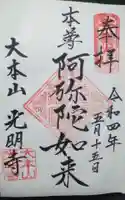 奉拝
令和四年
五月十五日
本尊
阿弥陀如来
大本山 光明寺